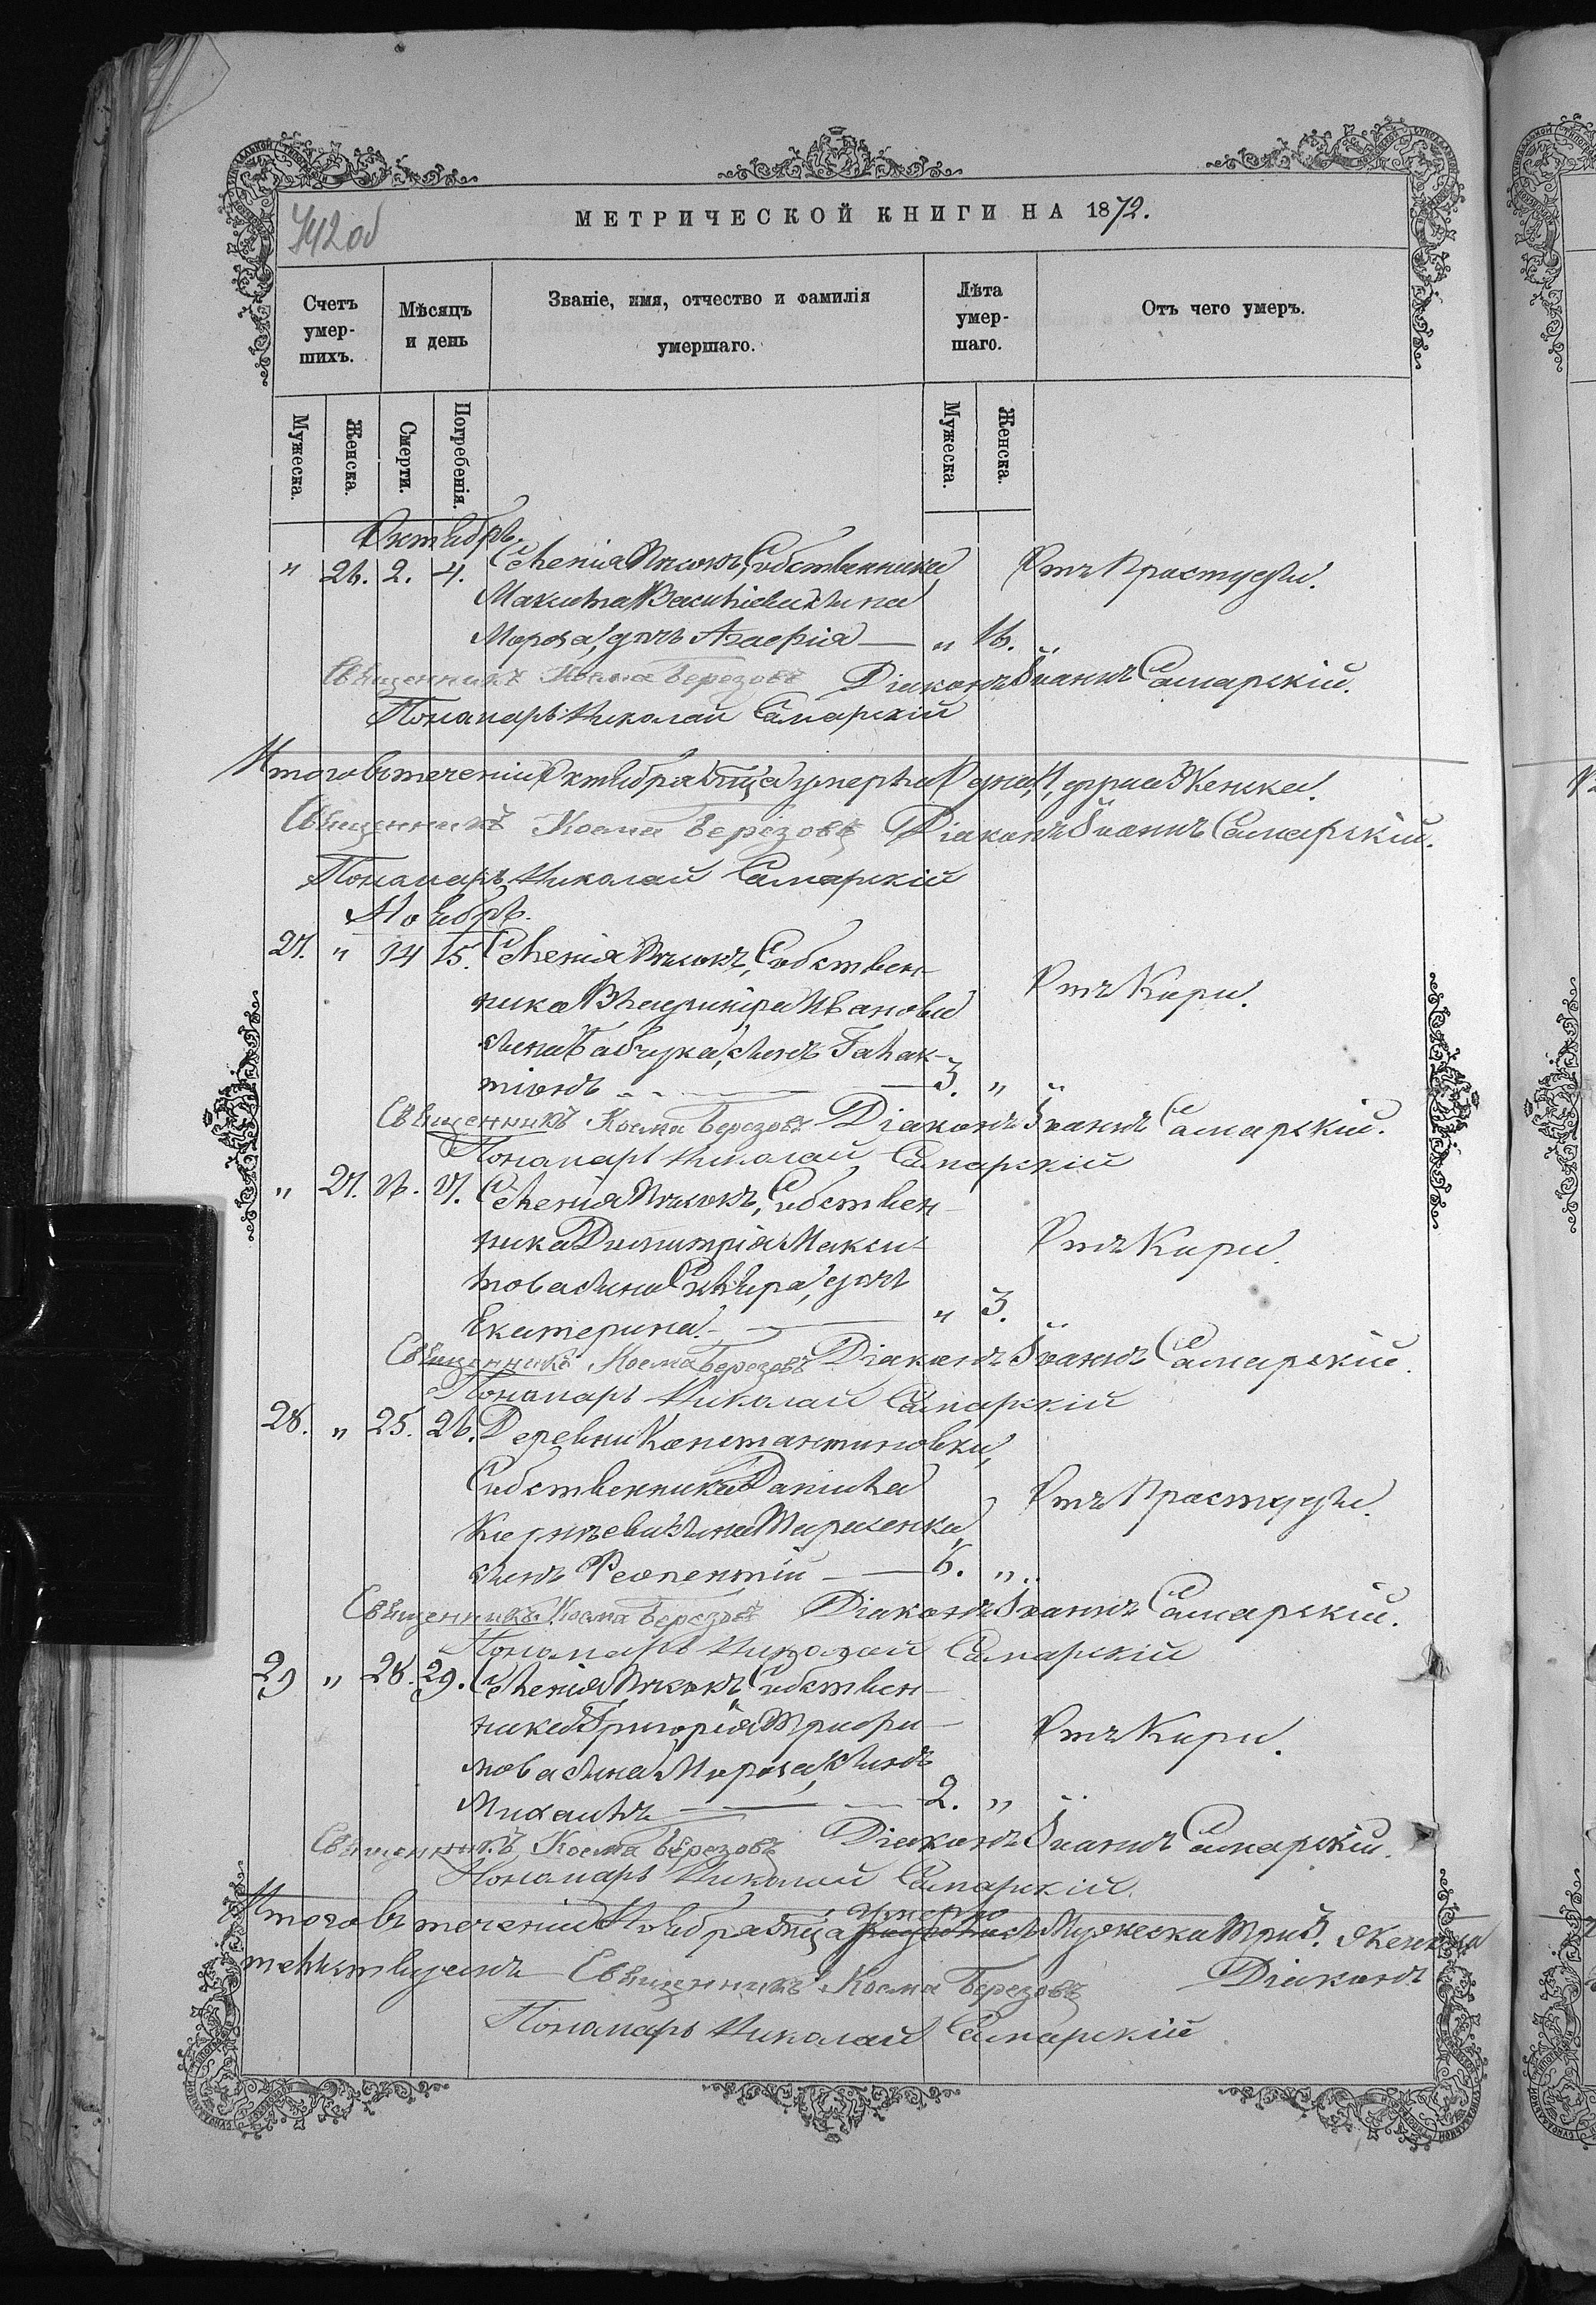 442 об
МЕТРИЧЕСКОЙ КНИГИ НА 1872.
Счетъ умер-шихъ.
Мѣсяцъ и день
Званіе, имя, отчество и фамилія умершаго.
Лѣта умер-шаго.
Отъ чего умеръ.
Мужеска.
Женска.
Смерти.
Погребенія.
Мужеска.
Женска.
Октябрь.
" 26. 2. 4. Селенія Собственника Отъ Простуды.
Васильевича
Мороза, дочь Агафія — " 16. "
Священникъ Косма Березовъ Діаконъ Іоаннъ Самарскій.
Пономарь Николай Самарскій
Итого въ теченіи Октября м-ца умерла Одна, 1, душа Женска.
Священникъ Косма Березовъ Діаконъ Іоаннъ Самарскій.
Пономарь Николай Самарскій
Ноябрь.
27. " 14 15. Селенія Собствен-
ника Владиміра Иванова Отъ Кори.
сына Бабчука, сынъ Галак-
тіонъ — 3. " "
Священникъ Косма Березовъ Діаконъ Іоаннъ Самарскій.
Пономарь Николай Самарскій
" 27. 16. 17. Селенія Собствен-
ника Димитрія Макси- Отъ Кори.
мова сына дочь
Екатерина. — " 3. "
Священникъ Косма Березовъ Діаконъ Іоаннъ Самарскій.
Пономарь Николай Самарскій
28. " 25. 26. Деревни Константиновки,
Собственника Даніила Отъ Простуды.
сынъ — 6. " "
Священникъ Косма Березовъ Діаконъ Іоаннъ Самарскій.
Пономарь Николай Самарскій
29 " 28. 29. Селенія Собствен-
ника Григорія Трифи- Отъ Кори.
мова сына Мороза, сынъ
Михаилъ — 2. " "
Священникъ Косма Березовъ Діаконъ Іоаннъ Самарскій.
Пономарь Николай Самарскій.
умерло
Итого въ теченіи Ноября м-ца Мужеска Три 3. Женска
Священникъ Косма Березовъ Діаконъ
Пономарь Николай Самарскій